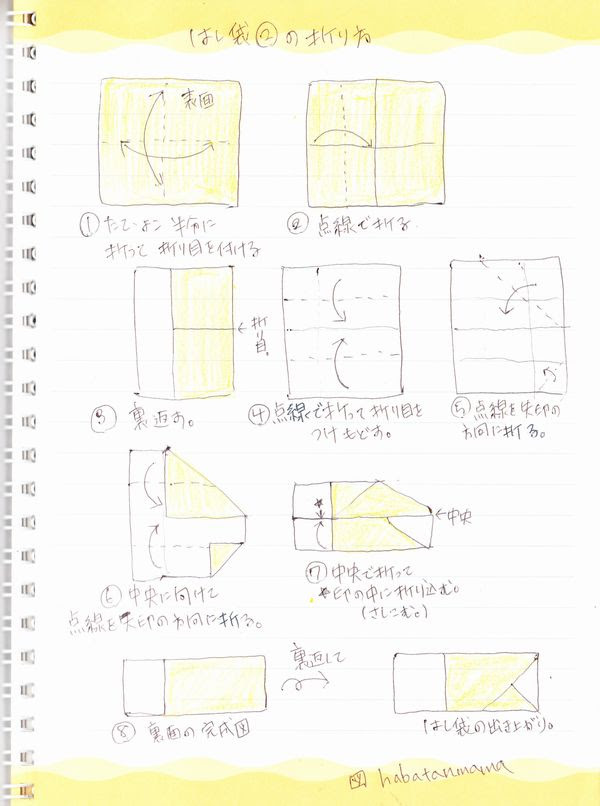 はし袋②の折り方
表面
①たて・よこ半分に
折って折り目を付ける
②点線で折る。
折目
③裏返す。
④点線で折って折り目を
つけもどす。
⑤点線を矢印の
方向に折る。
⑥中央に向けて
点線を矢印の方向に折る。
中央
⑦中央で折って
*印の中に折り込む。
(さしこむ。)
裏返して
⑧裏面の完成図
はし袋の出き上がり。
図 habatanmama